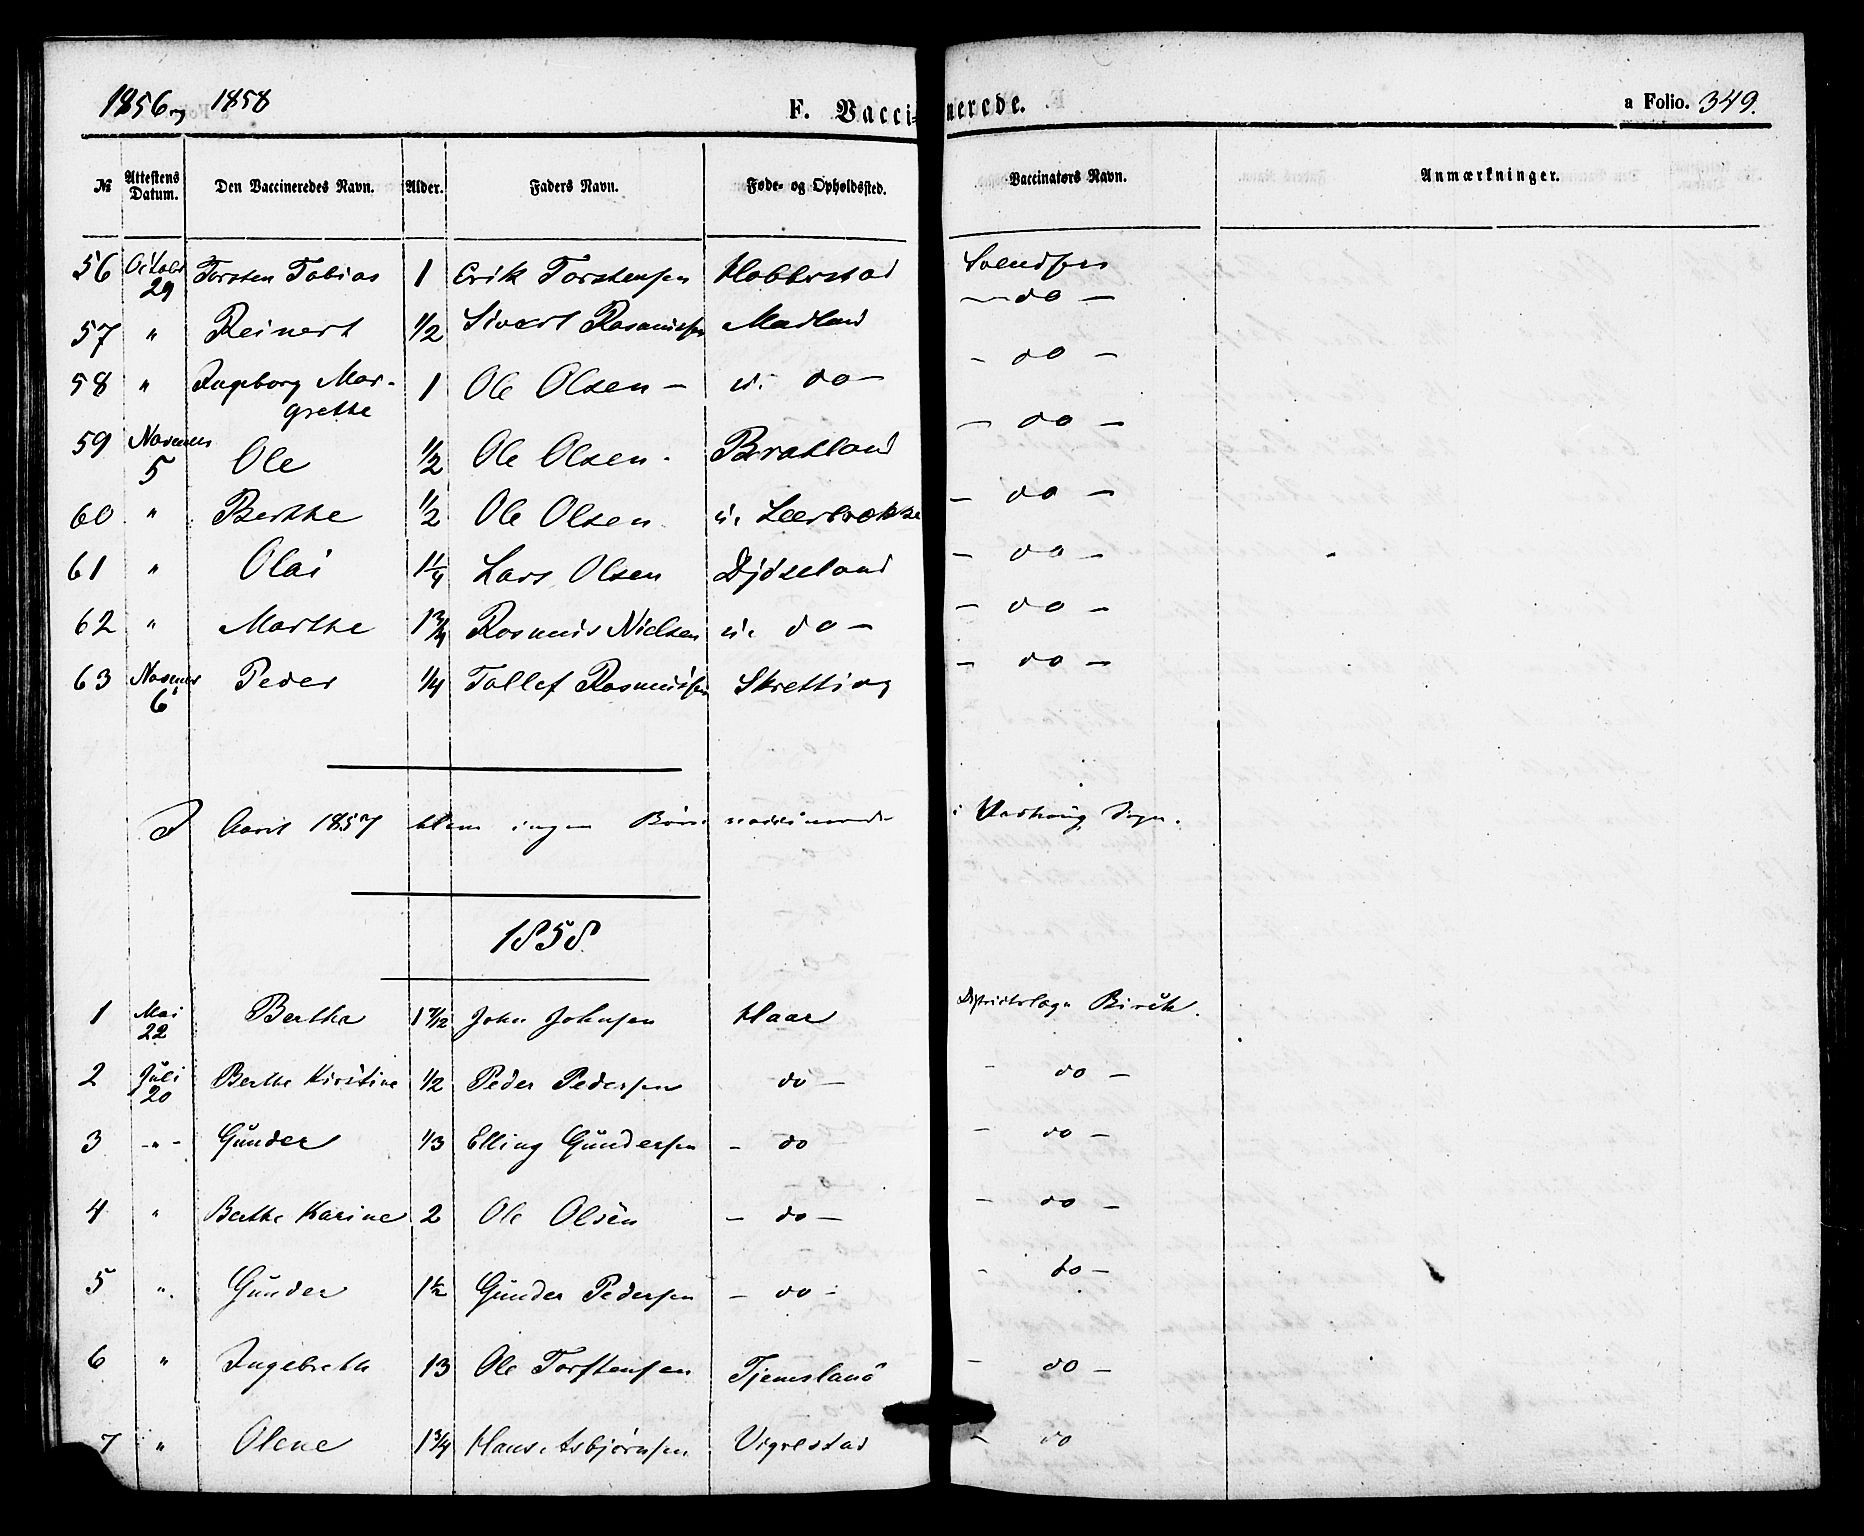 1856 og 1858 F. Vaccinerede. a Folio. 349.
№ Attestens Datum. Den Vaccineredes Navn. Alder. Faders Navn. Føde- og Opholdssted. Vaccinators Navn. Anmærkninger.
56 Octobr 29 Torsten Tobias 1 Erik Torstensen Hobberstad Svendsen
— do —
57 " Reinert 1/2 Sivert Rasmussen Madland — do —
58 " Ingeborg Mar-
grethe 1 Ole Olsen — do — — do —
59 5 Ole 1/2 Ole Olsen Bratland — do —
60 " Berthe 1/2 Ole Olsen — do —
61 " Olai 1 1/4 Lars Olsen Djöseland — do —
62 " Marthe 1 3/4 Rasmus Nielsen do — — do —
63 6 Peder 1/4 Tollef Rasmussen Skretting
I Aaret 1857 blev ingen Börn vaccinerede i Varhoug Sogn.
1858
1 Mai 22 Berthe 1 7/12 John Johnsen Haar Districtslæge Birch.
2 Juli 20 Berthe Kirstine 1/2 Peder Pedersen do — — do —
3 - " - Gunder 1/3 Elling Gundersen — do — do —
4 " Berthe Karine 2 Ole Olsen — do — — do —
5 " Gunder 1 1/2 Gunder Pedersen — do — — do —
6 " Ingebreth 13 Ole Torstensen Tjemsland — do —
7 " Olene 1 3/4 Hans Asbjørnsen Vigrestad — do